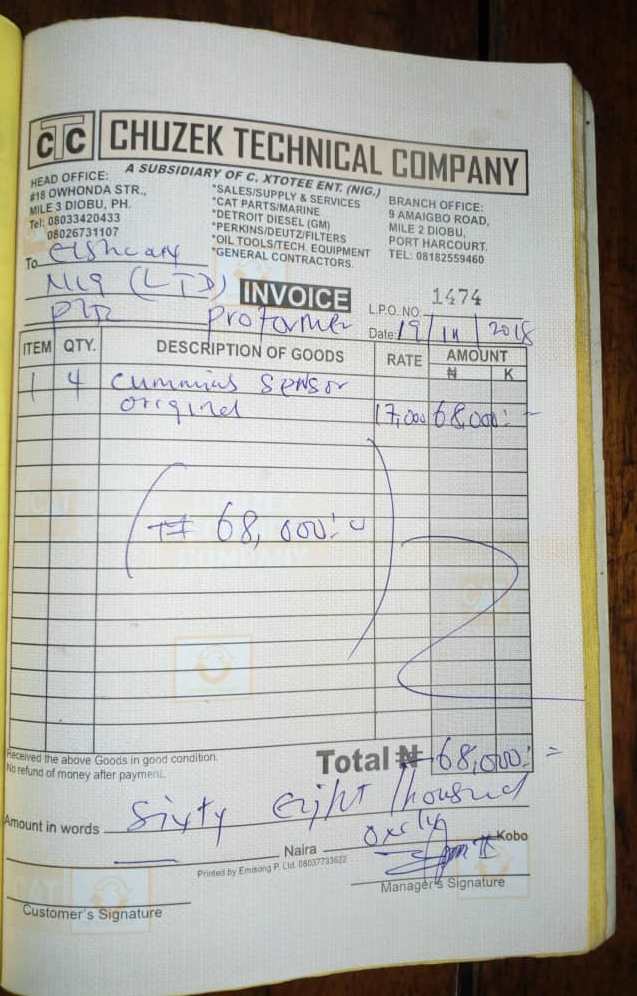 CTC CHUZEK TECHNICAL COMPANY
A SUBSIDIARY OF C. XTOTEE ENT. (NIG.)
HEAD OFFICE:
#18 OWHONDA STR.,
MILE 3 DIOBU, PH.
Tel: 08033420433
08026731107
*SALES/SUPPLY & SERVICES
*CAT PARTS/MARINE
*DETROIT DIESEL (GM)
*PERKINS/DEUTZ/FILTERS
*OIL TOOLS/TECH. EQUIPMENT
*GENERAL CONTRACTORS.
BRANCH OFFICE:
9 AMAIGBO ROAD,
MILE 2 DIOBU,
PORT HARCOURT.
TEL: 08182559460
To
(LTD) INVOICE
L.P.O. NO. 1474
Date: 19/ /2018
ITEM QTY. DESCRIPTION OF GOODS RATE AMOUNT
₦ K
1 4 cummins sensor
original 17,000 68,000:=
₦ 68,000:=
Received the above Goods in good condition.
No refund of money after payment.
Total ₦ 68,000:=
Amount in words Sixty Eight Thousand
Naira Kobo
Printed by Emisong P. Ltd. 08037733622
Customer's Signature
Manager's Signature